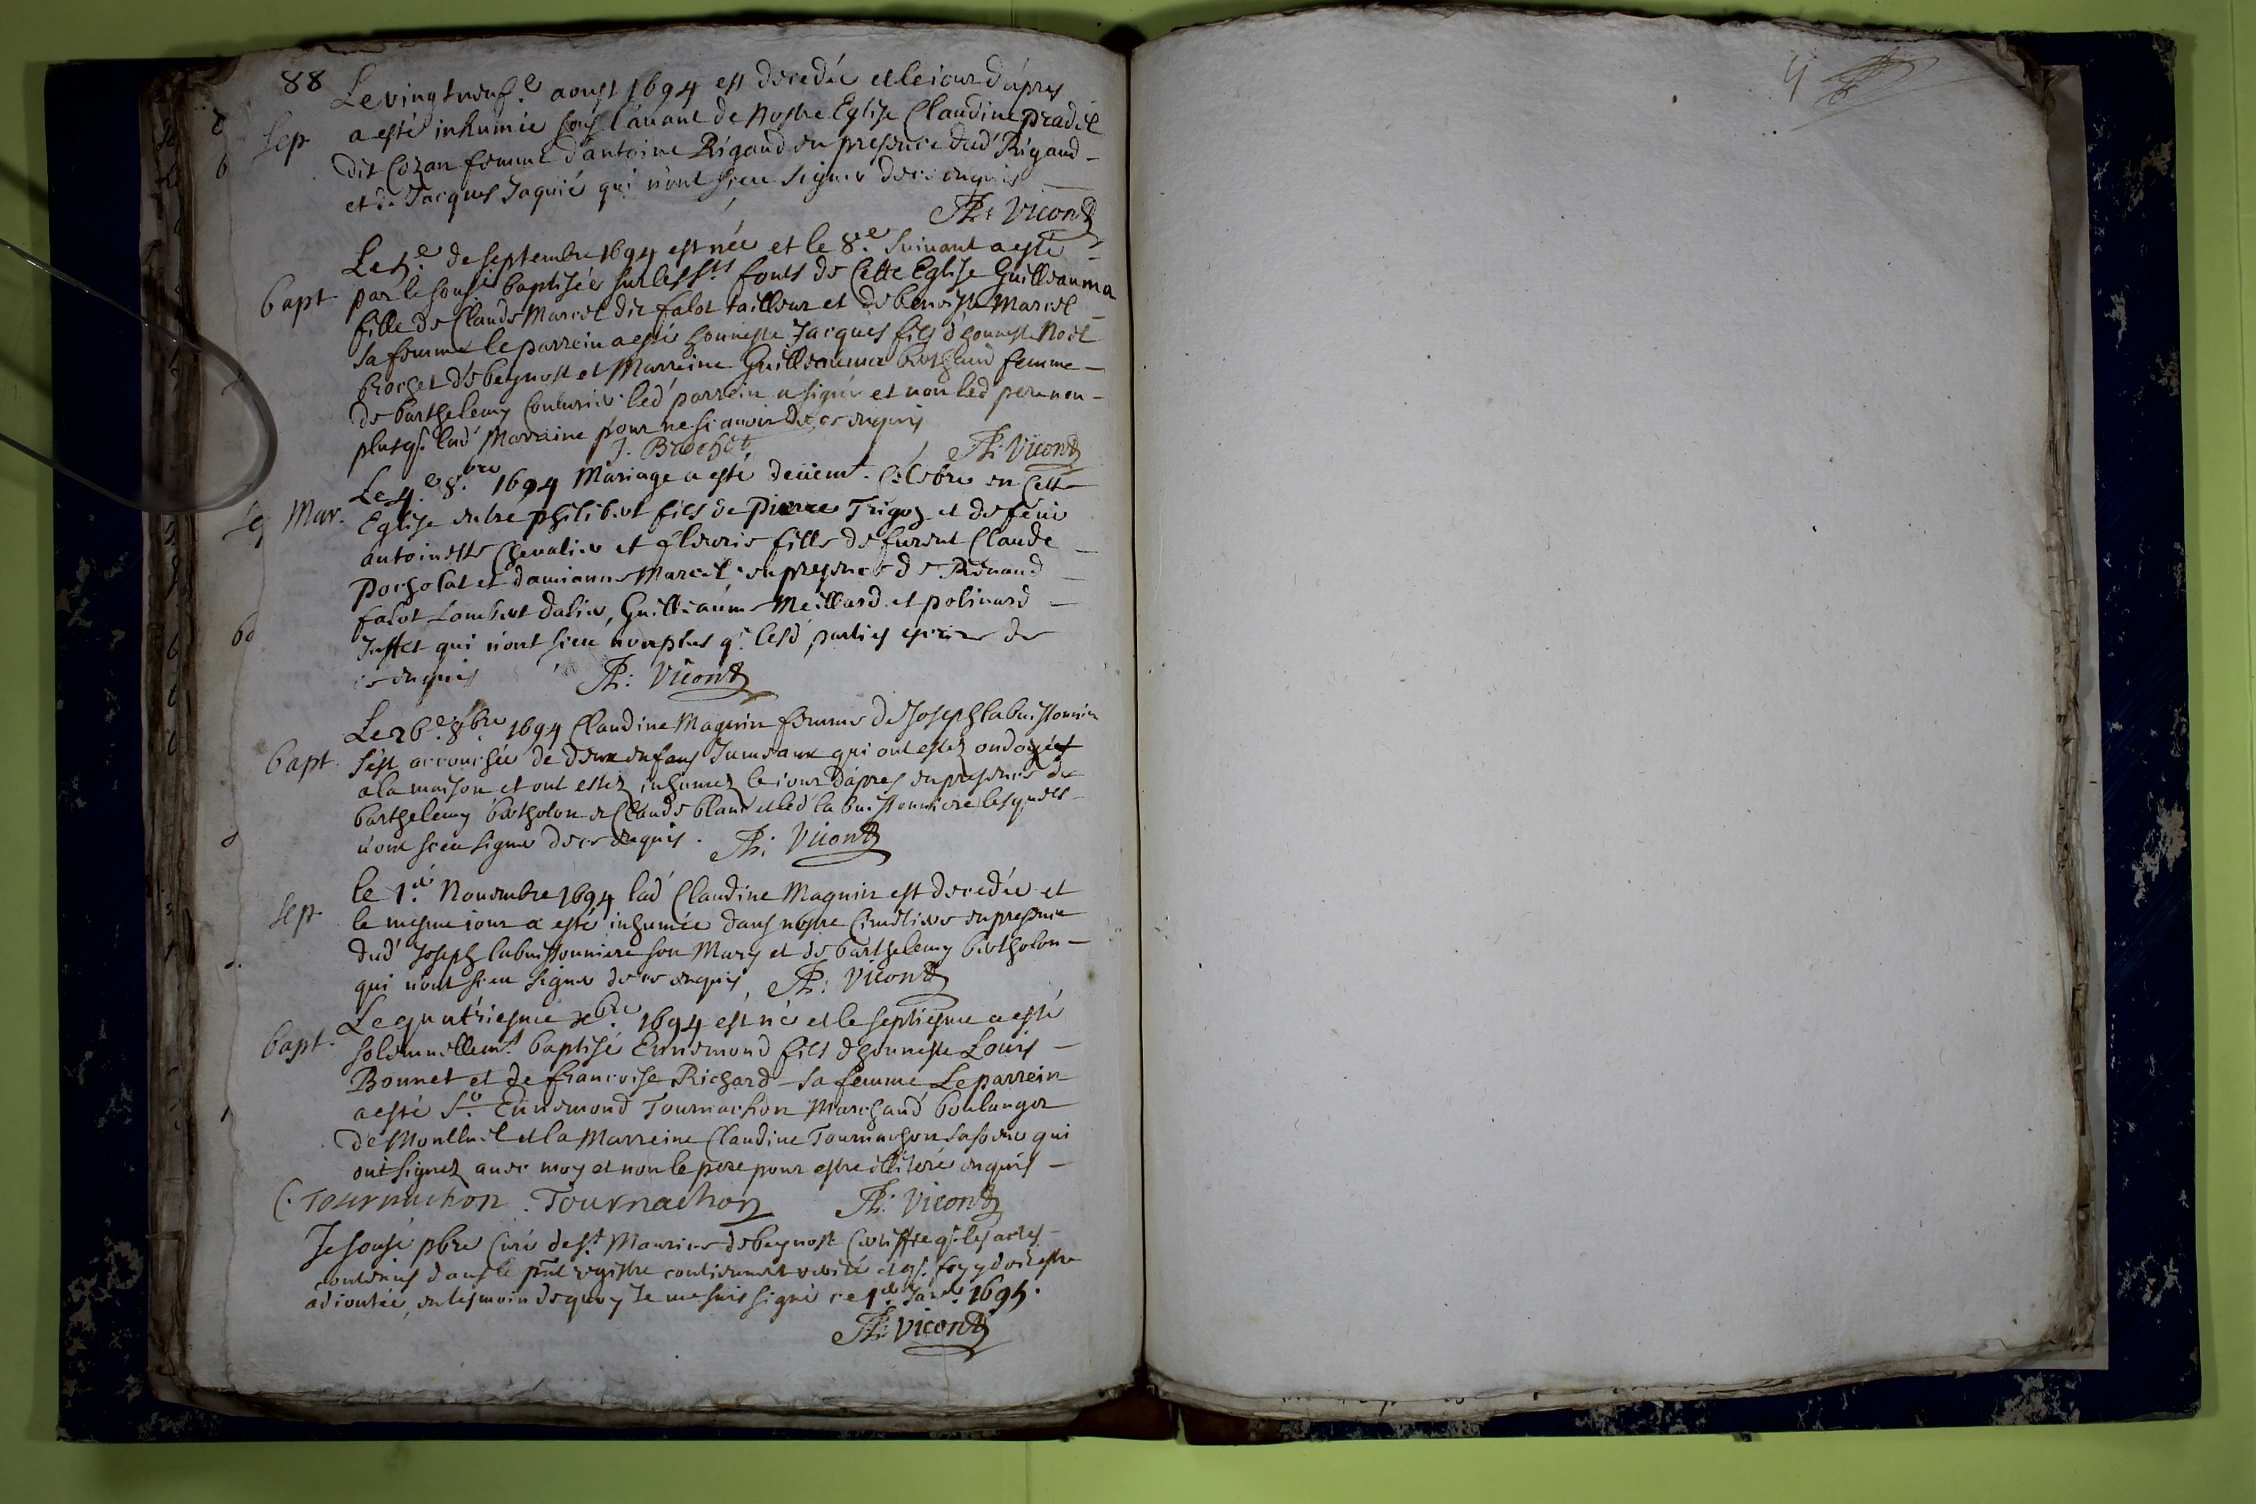 88
Le vingt neuf.e aoust 1694 est decedée et le iour d'apres
Sep a esté inhumée sous l'auant de Nostre Eglise Claudine pradel
dit Cozan femme d'antoine Rigaud en presence dud' Rigaud
et de Jacques Jaquié qui n'ont sceu signer de ce enquis
Ph: Vicond
Le 5.e de septembre 1694 est née et le 8.e suiuant a esté
Bapt par le sousé baptisée sur les sts fonts de Cette Eglise Guilleauma
fille de Claude Marcel dit falot tailleur et de benoiste Marcel
sa femme le parrein a esté honneste Jacques fils d'honneste Noël
Brochet de beynost et Marreine Guilleauma femme
de barthelemy Couturier led' parrein a signé et non led' pere non
plus q. lad' Marraine pour ne scauoir de ce enquis
J. Brochet Ph: Vicond
Le 4.e 8.bre 1694 Mariage a esté deüemt. Celebré en Cette
Mar. Eglise entre philibert fils de Pierre Trigoz et de feüe
antoinette Cheualier et fleurie fille de furent Claude
Pocholat et damianne Marcel, en presence de Renaud
falot Lambert dalier, Guilleaume Meillard et polinard
Juffet qui n'ont sceu non plus q. lesd' parties escrire de
ce enquis Ph: Vicond
Le 26.e 8.bre 1694 Claudine Magnin femme de Joseph labuissonnier
Bapt. s'est accouchée de deux enfans Jumeaux qui ont estez ondoyés
a la maison et ont estez inhumez le iour d'apres en presence de
barthelemy bertholon et Claude blanc et led' labuissonniere lesquels
n'ont sceu signer de ce enquis. Ph: Vicond
le 1.er Nouembre 1694 lad' Claudine Magnin est decedée et
Sep. le mesme iour a esté inhumée dans nostre Cimetiere en presence
dud' Joseph labuissonniere son Mary et de barthelemy bertholon
qui n'ont sceu signer de ce enquis, Ph: Vicond
Le quatriesme xbre 1694 est né et le septiesme a esté
Bapt. solemnellemt. baptisé Ennemond fils d'honneste Louis
Bonnet et de francoise Richard sa femme Le parrein
a esté Sr. Ennemond Tournachon Marchand boulanger
de Montluel et la Marreine Claudine Tournachon sa soeur qui
ont signez auec moy et non le pere pour estre illiteré enquis
C. Tournachon. Tournachon Ph: Vicond
Je sousé pbre Curé de St. Maurice de beynost Certiffie q. les actes
contenus dans le pnt registre contiennent verité et q. foy y doit estre
adioutée, en tesmoin de quoy Je me suis signé ce 1.er Janr. 1695.
Ph: Vicond